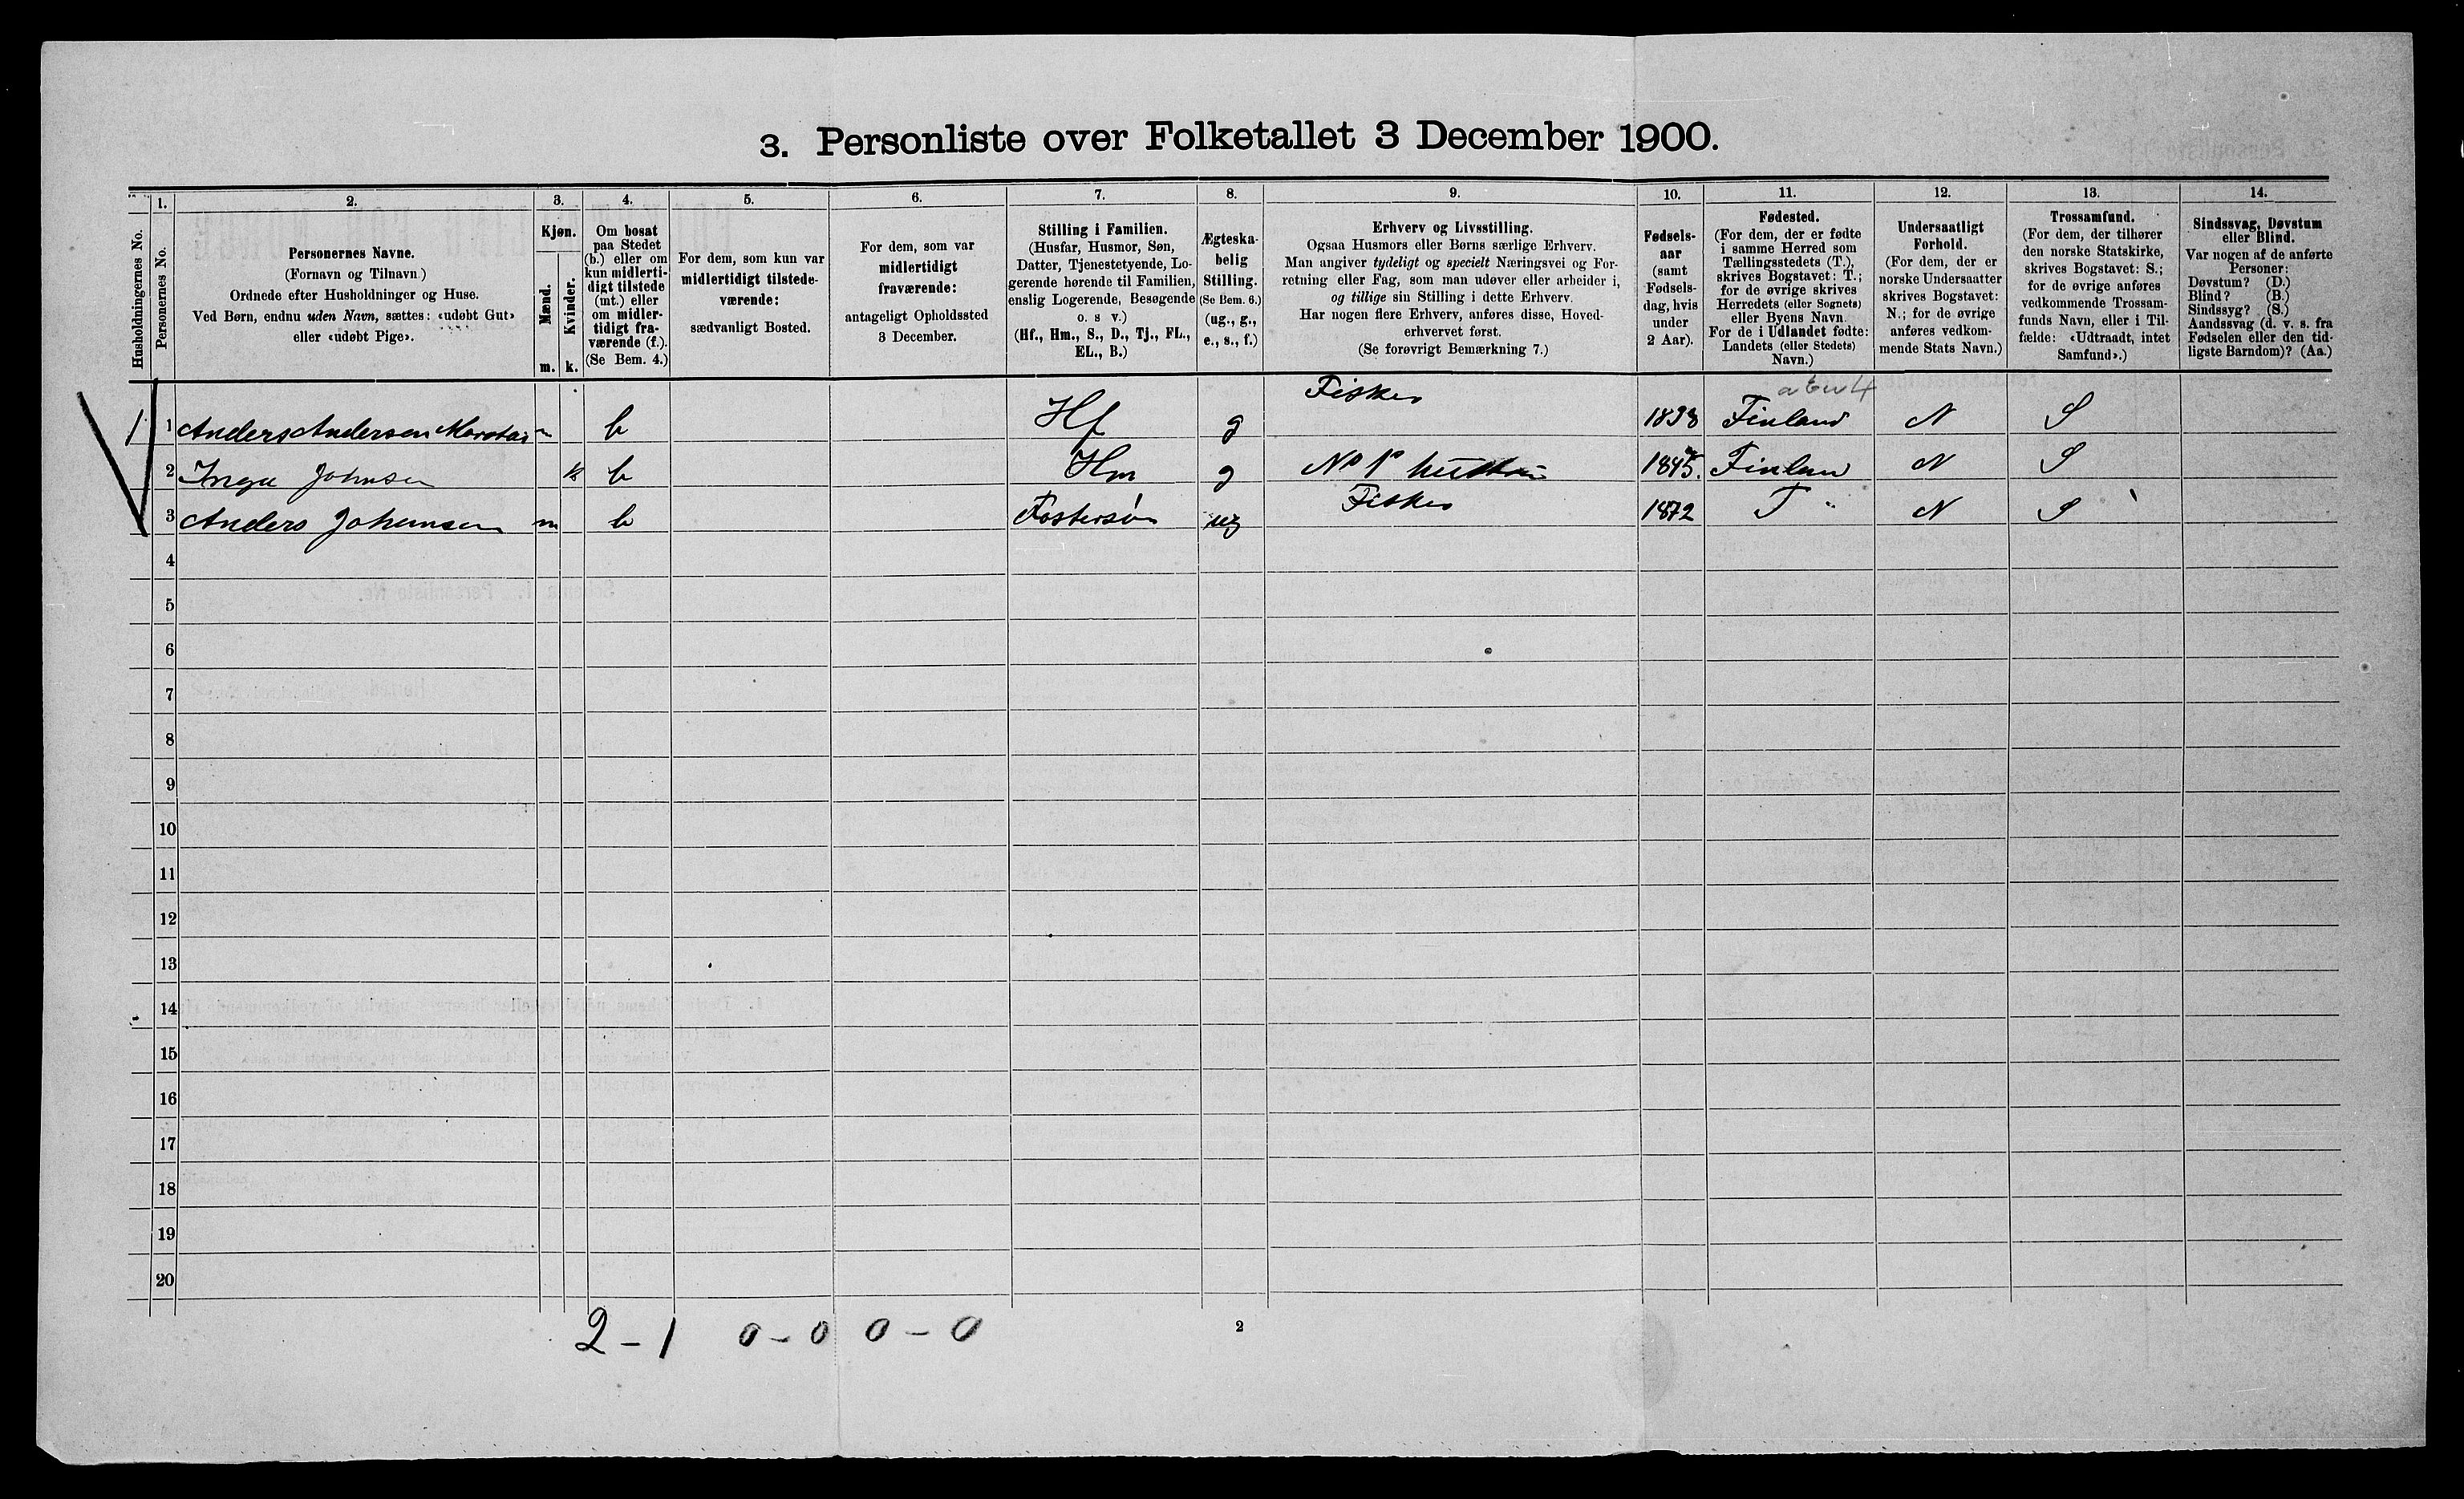 3. Personliste over Folketallet 3 December 1900.
Husholdningernes No.
1.
Personernes No.
2.
Personernes Navne.
(Fornavn og Tilnavn)
Ordnede efter Husholdninger og Huse.
Ved Børn, endnu uden Navn, sættes: «udøbt Gut»
eller «udøbt Pige».
3.
Kjøn.
Mænd.
m.
Kvinder.
k.
4.
Om bosat
paa Stedet
(b.) eller om
kun midlerti-
digt tilstede
(mt.) eller
om midler-
tidigt fra-
værende (f.).
(Se Bem. 4.)
5.
For dem, som kun var
midlertidigt tilstede-
værende:
sædvanligt Bosted.
6.
For dem, som var
midlertidigt
fraværende:
antageligt Opholdssted
3 December.
7.
Stilling i Familien.
(Husfar, Husmor, Søn,
Datter, Tjenestetyende, Lo-
gerende hørende til Familien,
enslig Logerende, Besøgende
o. s v.)
(Hf., Hm., S., D., Tj., FL.,
EL., B.)
8.
Ægteska-
belig
Stilling.
(Se Bem. 6.)
(ug., g.,
e., s., f.)
9.
Erhverv og Livsstilling.
Ogsaa Husmors eller Børns særlige Erhverv.
Man angiver tydeligt og specielt Næringsvei og For-
retning eller Fag, som man udøver eller arbeider i,
og tillige sin Stilling i dette Erhverv.
Har nogen flere Erhverv, anføres disse, Hoved-
erhvervet først.
(Se forøvrigt Bemærkning 7.)
10.
Fødsels-
aar
(samt
Fødsels-
dag, hvis
under
2 Aar).
11.
Fødested.
(For dem, der er fødte
i samme Herred som
Tællingsstedets (T.),
skrives Bogstavet: T.;
for de øvrige skrives
Herredets (eller Sognets)
eller Byens Navn.
For de i Udlandet fødte:
Landets (eller Stedets)
Navn.)
12.
Undersaatligt
Forhold.
(For dem, der er
norske Undersaatter
skrives Bogstavet:
N.; for de øvrige
anføres vedkom-
mende Stats Navn.)
13.
Trossamfund.
(For dem, der tilhører
den norske Statskirke,
skrives Bogstavet: S.;
for de øvrige anføres
vedkommende Trossam-
funds Navn, eller i Til-
fælde: «Udtraadt, intet
Samfund».)
14.
Sindssvag, Døvstum
eller Blind.
Var nogen af de anførte
Personer:
Døvstum? (D.)
Blind? (B.)
Sindssyg? (S.)
Aandssvag (d. v. s. fra
Fødselen eller den tid-
ligste Barndom)? (Aa.)
1 1 Anders Andersen m b Hf g Fisker 1838 Finland N S
2 Inga Johnsen k b Hm g 1845. Finlan N S
3 Anders Johansen m b Fostersøn ug Fisker 1872 T " N S
4
5
6
7
8
9
10
11
12
13
14
15
16
17
18
19
20
2 - 1 0 - 0 0 - 0
2